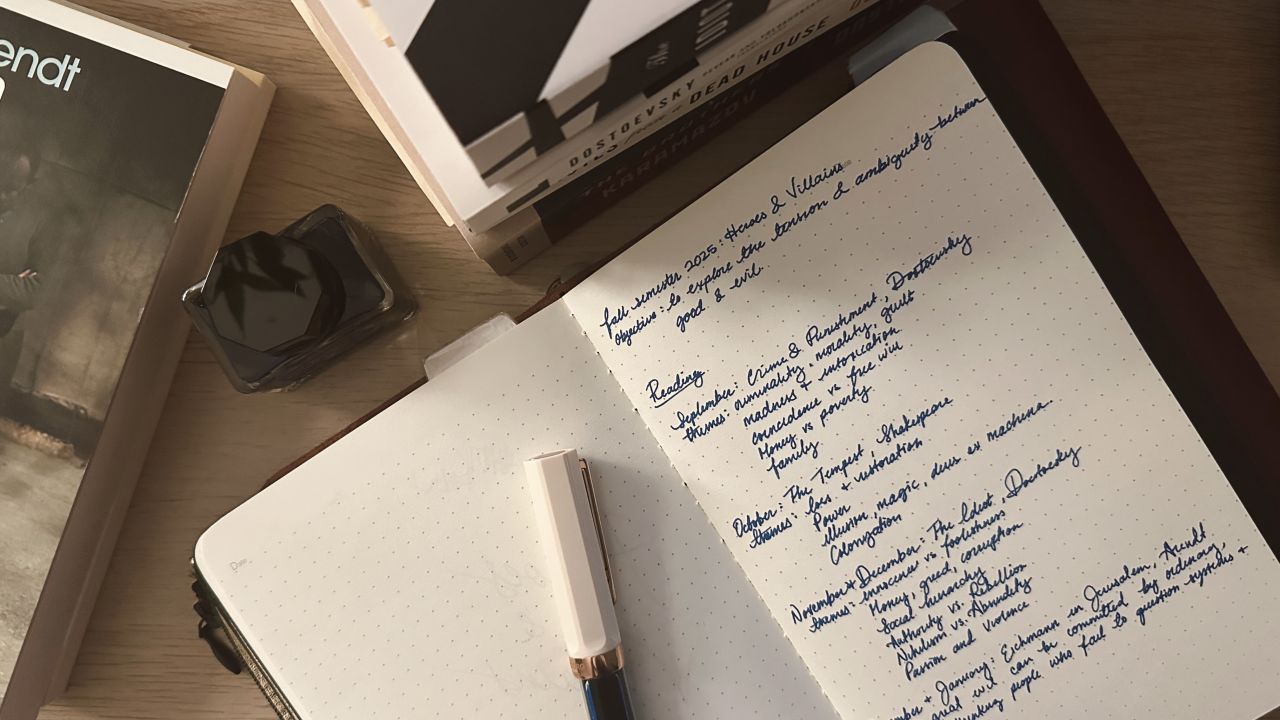 endt
The
IDIOT
DOSTOEVSKY
DEAD HOUSE
KARAMAZOV
Date
fall semester 2025: Heroes & Villains
Objective: to explore the tension & ambiguity between
good & evil.
Reading
September: Crime & Punishment, Dostoevsky
themes: criminality, morality, guilt
madness + intoxication
coincidence vs free will
Money vs poverty
family
October: The Tempest, Shakespeare
themes: loss + restoration
Power
illusion, magic, deus ex machina
Colonization
November + December: The Idiot, Dostoevsky
themes: innocence vs. foolishness
Money, greed, corruption
Social hierarchy
Authority vs. Rebellion
Nihilism vs. Absurdity
Passion and Violence
mber + January: Eichmann in Jerusalem, Arendt
great evil can be committed by ordinary,
thinking people who fail to question systems +